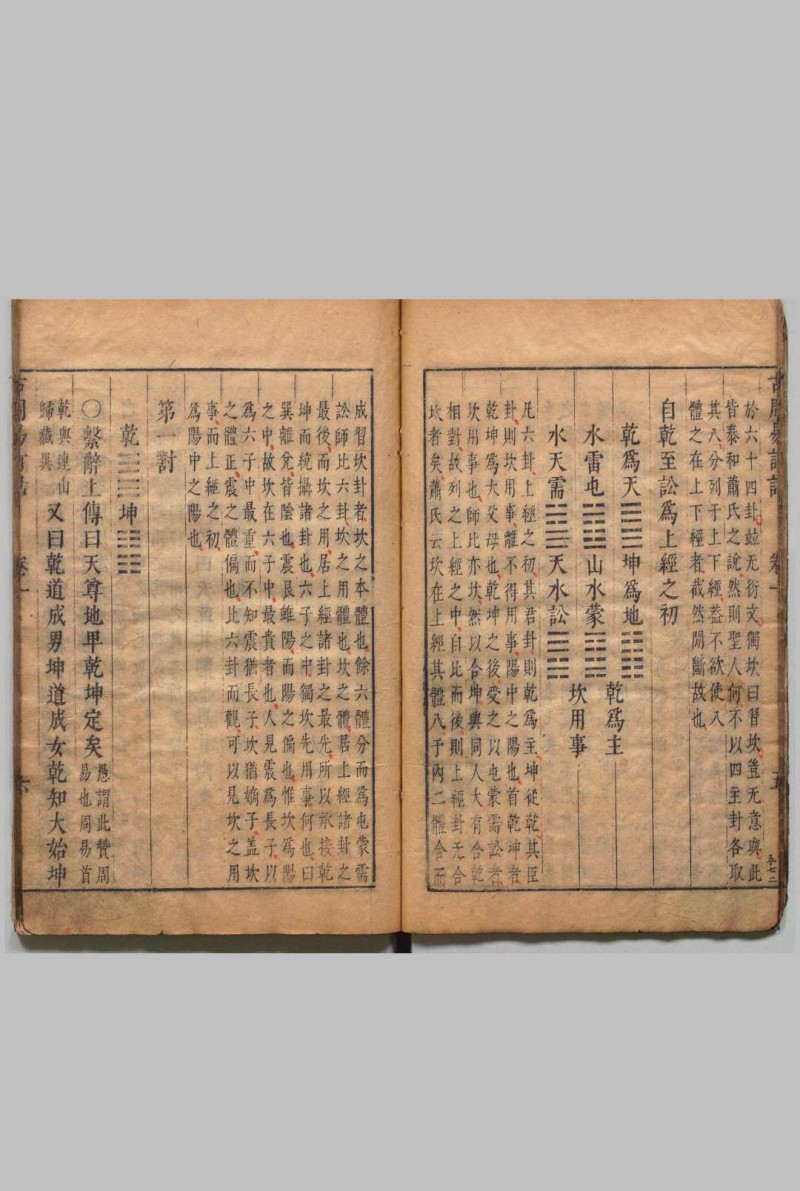 古周易訂詁 卷一 五
於六十四卦竝无衍文獨坎曰習坎豈无意與此
皆泰和蕭氏之說然則聖人何不以四主卦各取
其八分列于上下經葢不欲使八
體之在上下經者截然閒斷故也
自乾至訟爲上經之初
乾爲天 坤爲地 乾爲主
水雷屯 山水蒙 坎用事
水天需 天水訟
凡六卦上經之初其君卦則乾爲主坤從乾其臣
卦則坎用事離不得用事陽中之陽也首乾坤者
乾坤爲大父母也乾坤之後受之以屯蒙需訟者
坎用事也師比亦坎然以合坤與同人大有合乾
相對故列之上經之中自比而後則上經卦无合
坎者矣蕭氏云坎在上經其體八于內二體合而
成習坎卦者坎之本體也餘六體分而爲屯蒙需
訟師比六卦坎之用體也坎之體居上經諸卦之
最後而坎之用居上經諸卦之最先所以承接乾
坤而統攝諸卦也六子之中獨坎先用事何也曰
巽離兌皆陰也震艮雖陽而陽之偏也惟坎爲陽
之中故坎在六子中最貴者也人見震爲長子以
爲六子中最重而不知震猶長子坎猶嫡子盖坎
之體正震之體偏也比六卦而觀可以見坎之用
事而上經之初
爲陽中之陽也
第一對
乾 坤
〇繫辭上傳曰天尊地卑乾坤定矣 愚謂此贊周
易也周易首
乾與連山
歸藏異 又曰乾道成男坤道成女乾知大始坤
卷一 六